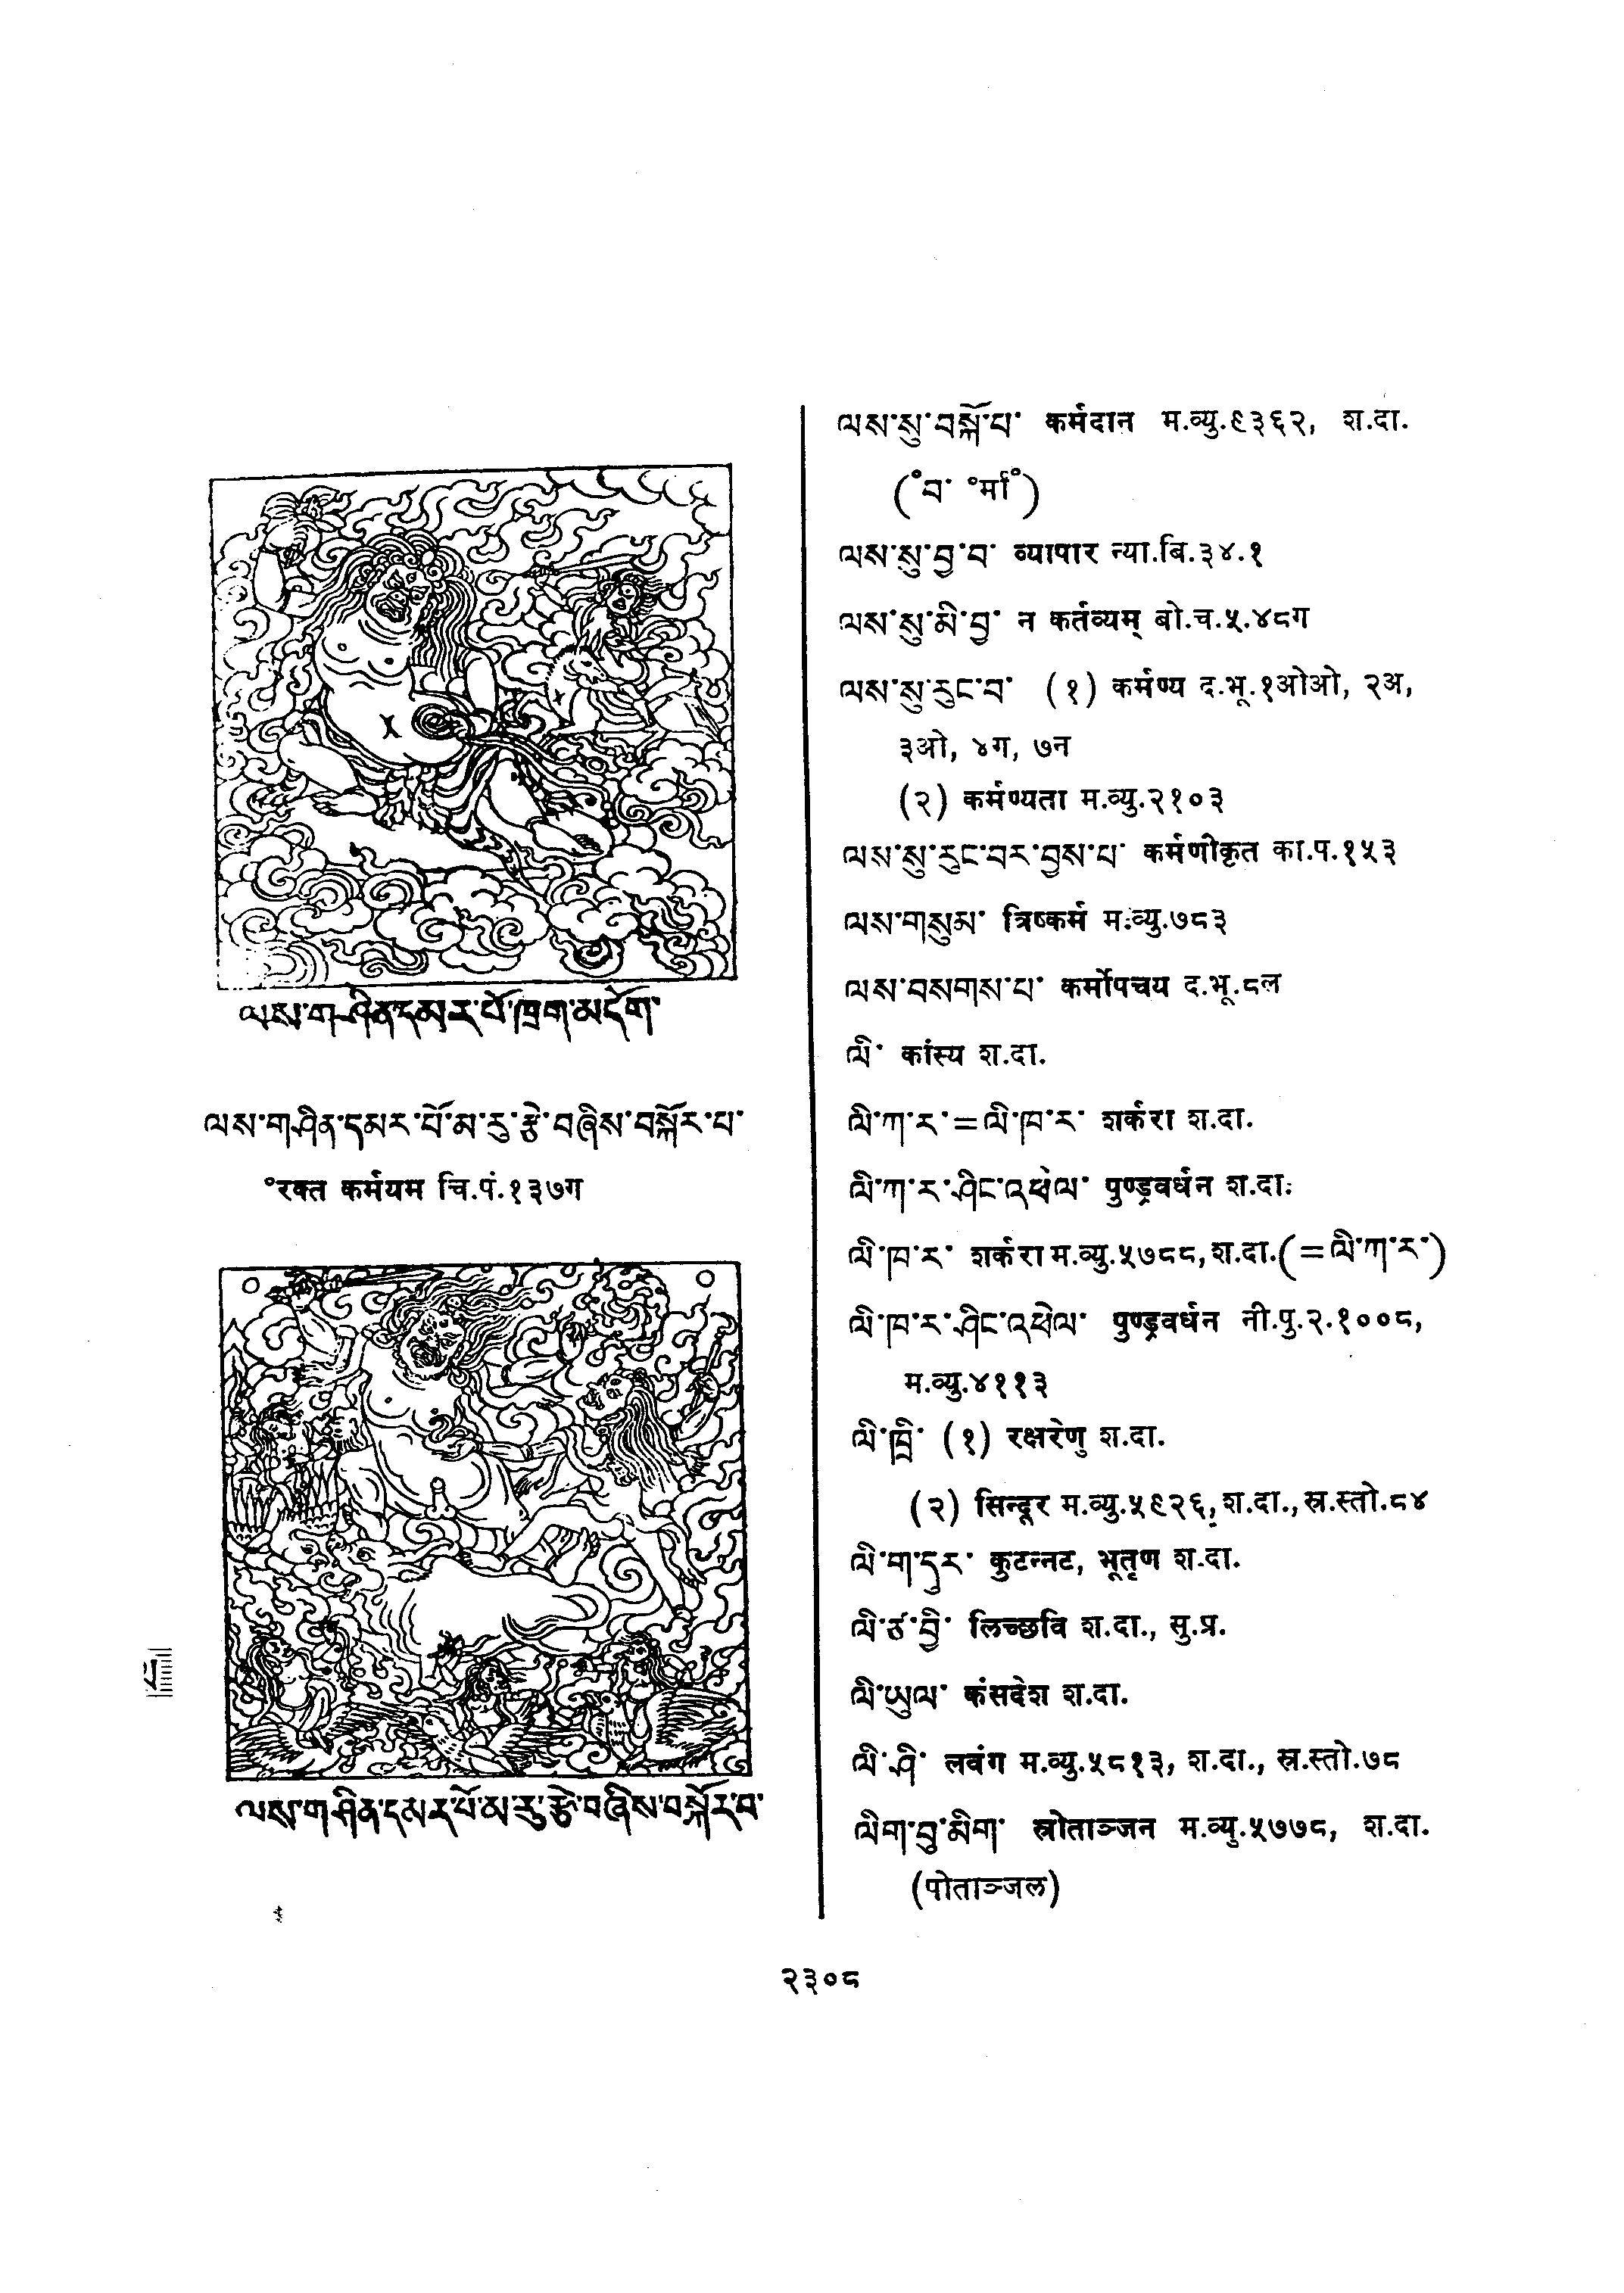 ལས་གཤིན་དམར་པོ་ཁྲག་མདོག་
ལས་གཤིན་དམར་པོ་མ་རུ་རྩེ་བཞིས་བསྐོར་པ་
॰रक्त कर्मयम चि.पं.१३७ग
ལས་གཤིན་དམར་པོ་མ་རུ་རྩེ་བཞིས་བསྐོར་བ་
ལས་སུ་བསྐོ་པ་ कर्मदान म.व्यु.९३६२, श.दा.
(॰བ་ ॰र्मा॰)
ལས་སུ་བྱ་བ་ व्यापार न्या.बि.३४.१
ལས་སུ་མི་བྱ་ न कर्तव्यम् बो.च.५.४८ग
ལས་སུ་རུང་བ་ (१) कर्मण्य द.भू.१ओओ, २अ,
३ओ, ४ग, ७न
(२) कर्मण्यता म.व्यु.२१०३
ལས་སུ་རུང་བར་བྱས་པ་ कर्मणीकृत का.प.१५३
ལས་གསུམ་ त्रिष्कर्म म.व्यु.७८३
ལས་བསགས་པ་ कर्मोपचय द.भू.८ल
ལི་ कांस्य श.दा.
ལི་ཀ་ར་=ལི་ཁ་ར་ शर्करा श.दा.
ལི་ཀ་ར་ཤིང་འཕེལ་ पुण्ड्रवर्धन श.दा.
ལི་ཁ་ར་ शर्करा म.व्यु.५७८८, श.दा.(=ལི་ཀ་ར་)
ལི་ཁ་ར་ཤིང་འཕེལ་ पुण्ड्रवर्धन नी.पु.२.१००८,
म.व्यु.४११३
ལི་ཁྲི་ (१) रक्षरेणु श.दा.
(२) सिन्दूर म.व्यु.५९२६, श.दा., स्र.स्तो.८४
ལི་ག་དུར་ कुटन्नट, भूतृण श.दा.
ལི་ཙ་བྱི་ लिच्छवि श.दा., सु.प्र.
ལི་ཡུལ་ कंसदेश श.दा.
ལི་ཤི་ लवंग म.व्यु.५८१३, श.दा., स्र.स्तो.७८
ལིག་བུ་མིག་ स्रोताञ्जन म.व्यु.५७७८, श.दा.
(पोताञ्जल)
२३०८